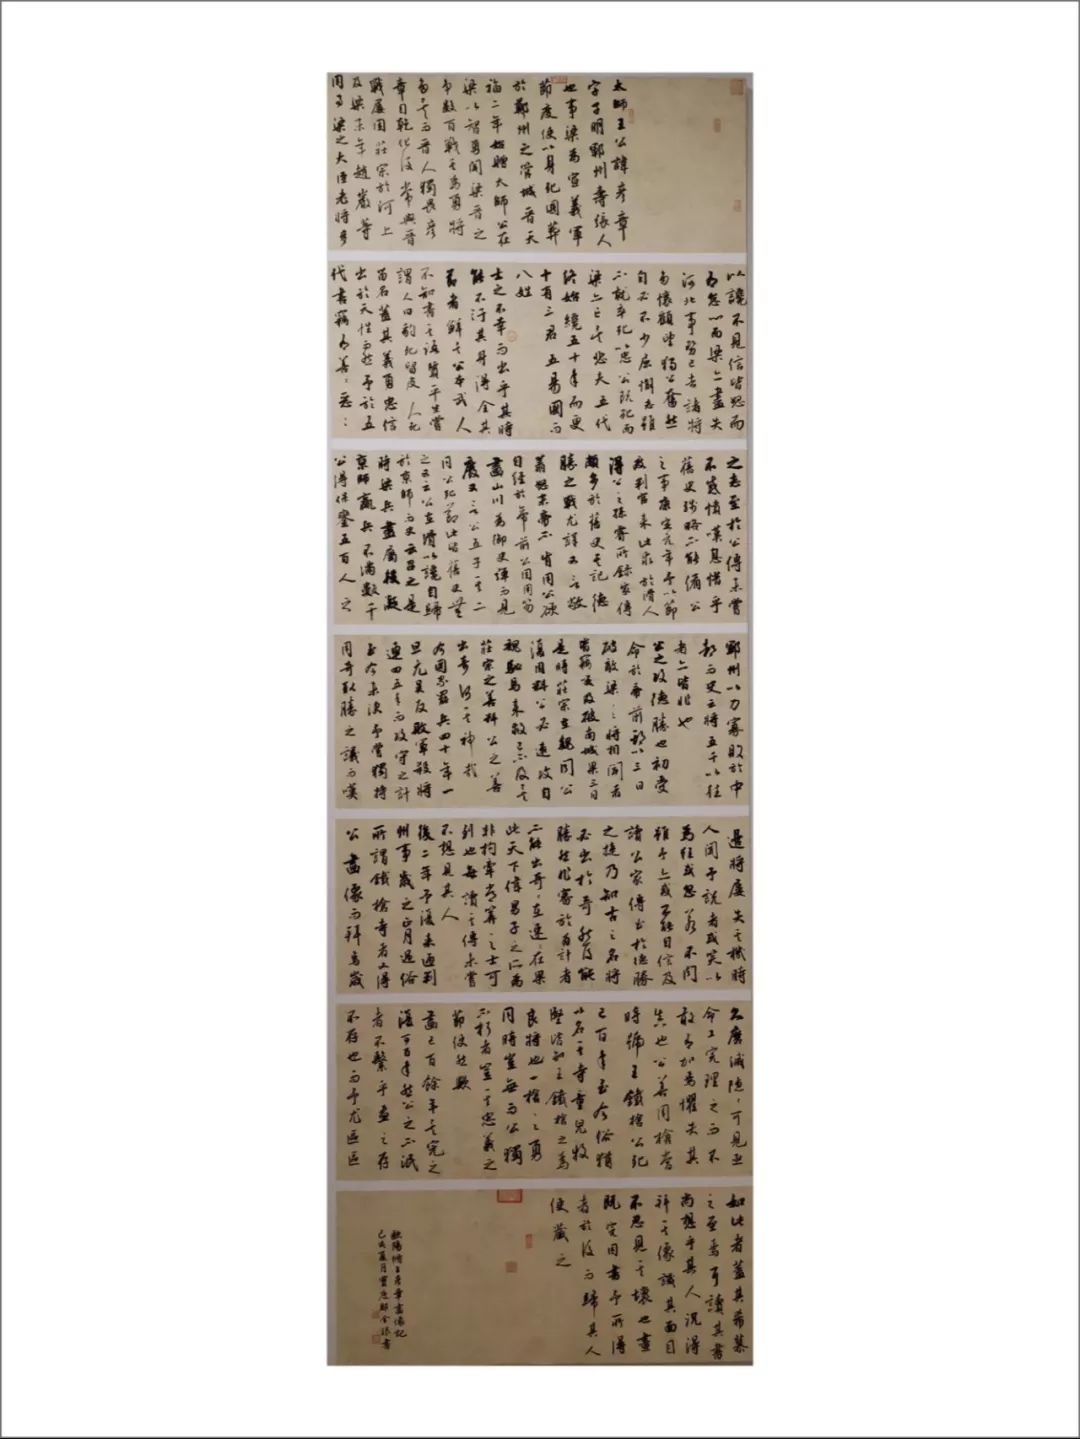 太師王公諱彦章
字子明鄆州壽張人
也事梁為宣義軍
節度使以身死國葬
於鄭州之管城晉天
福二年始贈太師公在
梁以智勇聞梁晉之
争數百戰其為勇將
多矣而晉人獨畏彦
章自乾化後常與晉
戰屢困莊宗於河上
及梁末年趙巖等
用事梁之大臣老將多
以讒不見信皆怒而
有怠心而梁亦盡失
河北事勢已去諸將
多懷顧望獨公奮然
自必不少屈懈志雖
不就卒死以忠公既死而
梁亦亡矣悲夫五代
終始纔五十年而更
十有三君五易國而
八姓
士之不幸而出乎其時
能不汙其身得全其
節者鮮矣公本武人
不知書其語質平生嘗
謂人曰豹死留皮人死
留名蓋其義勇忠信
出於天性而然予於五
代書竊有善〻惡〻
之志至於公傳未嘗
不感憤嘆息惜乎
舊史殘略不能備公
之事康定元年予以節
度判官來此求於滑人
得公之孫睿所録家傳
頗多於舊史其記德
勝之戰尤詳又言敬
翔怒末帝不肯用公欲
自經於帝前公因用笏
畫山川為御史彈而見
廢又言公五子其二
同公死節此皆舊史無
之又云公在滑以讒自歸
於京師而史云召之是
時梁兵盡屬段凝
京師羸兵不滿數千
公得保鑾五百人之
鄆州以力寡敗於中
都而史云將五千以往
者亦皆非也
公之攻德勝也初受
命於帝前期以三日
破敵梁之將相聞者
皆竊笑及破南城果三日
是時莊宗在魏聞公
復用料公必速攻自
魏馳馬來救已不及矣
莊宗之善料公之善
出奇何其神哉
今國家罷兵四十年一
旦元昊反敗軍殺將
連四五年而攻守之計
至今未決予嘗獨持
用奇取勝之議而嘆
邊將屢失其機時
人聞予説者或笑以
為狂或忽若不聞
雖予亦惑不能自信及
讀公家傳至於德勝
之捷乃知古之名將
必出於奇然後能
勝然非審於為計者
不能出奇〻在速〻在果
此天下偉男子之所為
非拘牽常算之士可
到也每讀其傳未嘗
不想見其人
後二年予復來通判
州事歲之正月過俗
所謂鐵槍寺者又得
公畫像而拜焉歲
久磨滅隱〻可見亟
命工完理之而不
敢有加焉懼失其
真也公善用槍當
時號王鐵槍公死
已百年至今俗猶
以名其寺童兒牧
豎皆知王鐵槍之為
良將也一槍之勇
同時豈無而公獨
不朽者豈其忠義之
節使然歟
畫已百餘年矣完之
復可百年然公之不泯
者不繫乎畫之存
不存也而予尤區區
如此者蓋其希慕
之至焉耳讀其書
尚想乎其人況得
拜其像識其面目
不忍見其壞也畫
既完因書予所得
者於後而歸其人
使藏之
歐陽脩王彦章畫像記
己亥夏月